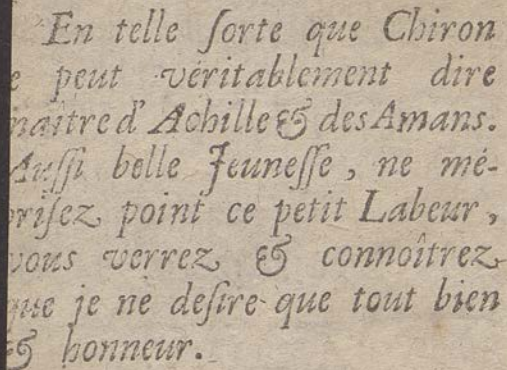 En telle ſorte que Chiron
e peut véritablement dire
maître d'Achille & des Amans.
Auſſi belle Jeuneſſe, ne mé-
priſez point ce petit Labeur,
vous verrez & connoîtrez
que je ne deſire que tout bien
& honneur.